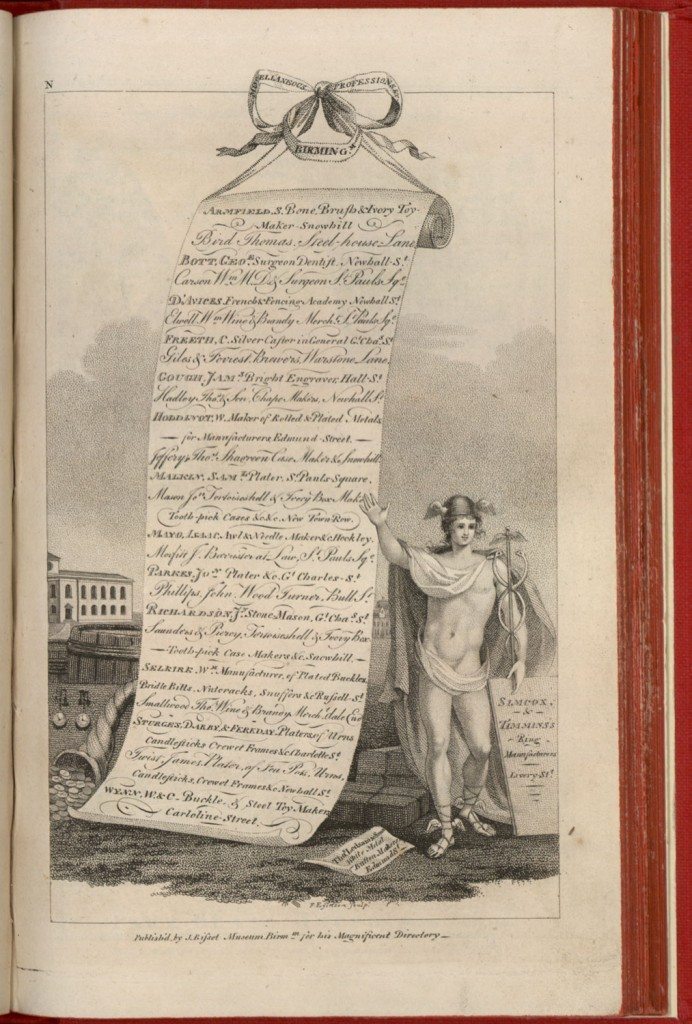 N
MISCELLANEOUS PROFESSIONS &c
BIRMING.m
ARMFIELD, S. Bone, Brush & Ivory Toy-
Maker - Snowhill
Bird Thomas, Steel-house Lane
BOTT, GEO. Surgeon Dentist, Newhall-St.
Carson Wm. M.D. & Surgeon St. Pauls Sqe.
D'AVICES, French & Fencing Academy Newhall St.
Elwell, Wm. Wine & Brandy Mercht. St. Pauls Sqe.
FREETH, C. Silver Caster in General Gt. Chas. St.
Giles & Forrest, Brewers, Warstone Lane,
GOUGH, JAMs. Bright Engraver, Hall-St.
Hadley Thos. & Son, Chape Makers, Newhall St.
HODDINOT, W. Maker of Rolled & Plated Metals
— for Manufacturers, Edmund-Street. —
Jeffery, Thos. Shagreen Case Maker &c Snowhill
MALKIN, SAML. Plater, St. Pauls Square,
Mason Jos. Tortoiseshell & Ivory Box Maker
Tooth-pick Cases &c &c. New Town Row,
MAYO, ISAAC, Awl & Needle Maker &c Hockley.
J. Barrister at Law, St. Pauls Sqe.
PARKES, Plater &c Gt. Charles-St.
Phillips, John, Wood Turner, Bull St.
RICHARDSON, Stone Mason, Gt. Chas. St.
Saunders & Piercy, Tortoiseshell & Ivory Box
— Tooth-pick Case Makers &c Snowhill. —
SELKIRK, Wm. Manufacturer, of Plated Buckles,
Bridle Bitts, Nutcracks, Snuffers &c Russell-St.
Smallwood Thos. Wine & Brandy Mercht.
STURGES, DARBY, & FEREDAY, Platers of Urns
Candlesticks, Crewet Frames &c Charlotte St.
Twist, James, Plater, of Tea Pots, Urns,
Candlesticks, Crewet Frames &c Newhall St.
WYNN, W. & C. Buckle & Steel Toy Maker
Carloline-Street.
SIMCOX,
— & —
TIMMINSS
Ring
Manufacturers
Livery St.
Thos.
White Metal
Button Maker
Edmund St.
Publish'd by J. Bisset Museum Birmm. for his Magnificent Directory —